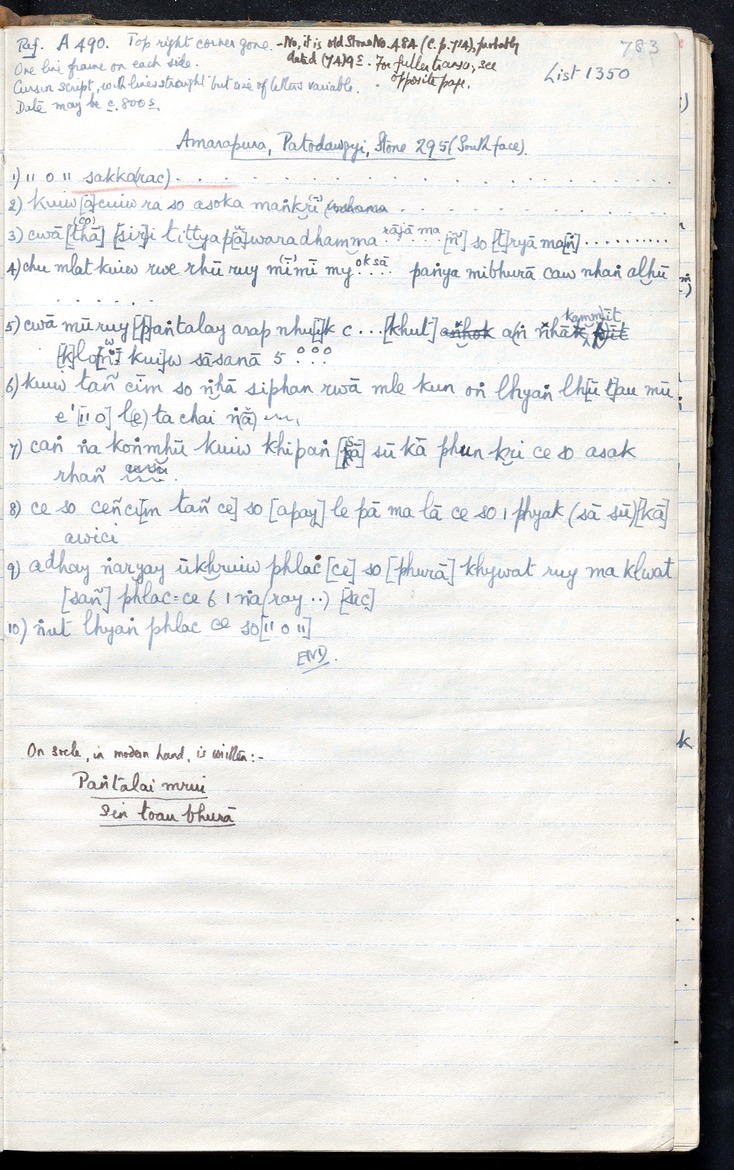 Ref. A 490. Top right corner gone. - No, it is old Stone No. 48A (C. p. 714), probably
783
One line frame on each side. dated (74)9 s. For fuller transn, see
Cursive script, with lines straight but size of letters variable. opposite page.
List 1350
Date may be c. 800 s.
Amarapura, Patodawgyi, Stone 295 (South face).
1) 11 0 11 sakka(rac) . . . . . . . . . .
2) kuiw [ā]cuiw ra so asoka maṅkrī . . . . . . . .
3) cwā [thā] [sir]i tittyapawaradhamma rājā ma [ñ] so [t]ryā ma[ṅ] ..........
4) chu mlat kuiw rwe rhū ruy mimī my . . . . panya mibhurā caw nhaṅ alhū
. . . . . . .
5) cwā mū ruy [p]aṅtalay arap nhu[i]k c ... [khut] a[ṅ] ṅhāk
kuiw sāsanā 5 °°°
6) kuiw tañ cīm so ṅhā siphan rwā mle kun oṅ lhyaṅ lh[ū t]au mū
e' [11 0] l(e) ta chai
7) caṅ ṅa koṅmhū kuiw khipaṅ sū kā phun kri ce so asak
rhañ
8) ce so ceñci[m tañ ce] so [apay] le pā ma lā ce so 1 phyak (sā sū) [kā]
awici
9) adhay ṅaryay ūkhruiw phlac [ce] so [phurā] khywat ruy ma klwat
[sañ] phlac = ce 6 1 ṅa(ray ..) [sac]
10) ṅut lhyaṅ phlac ce so [11 0 11]
END.
On socle, in modern hand, is written:-
Paṅtalai mrui
Sin toau bhurā